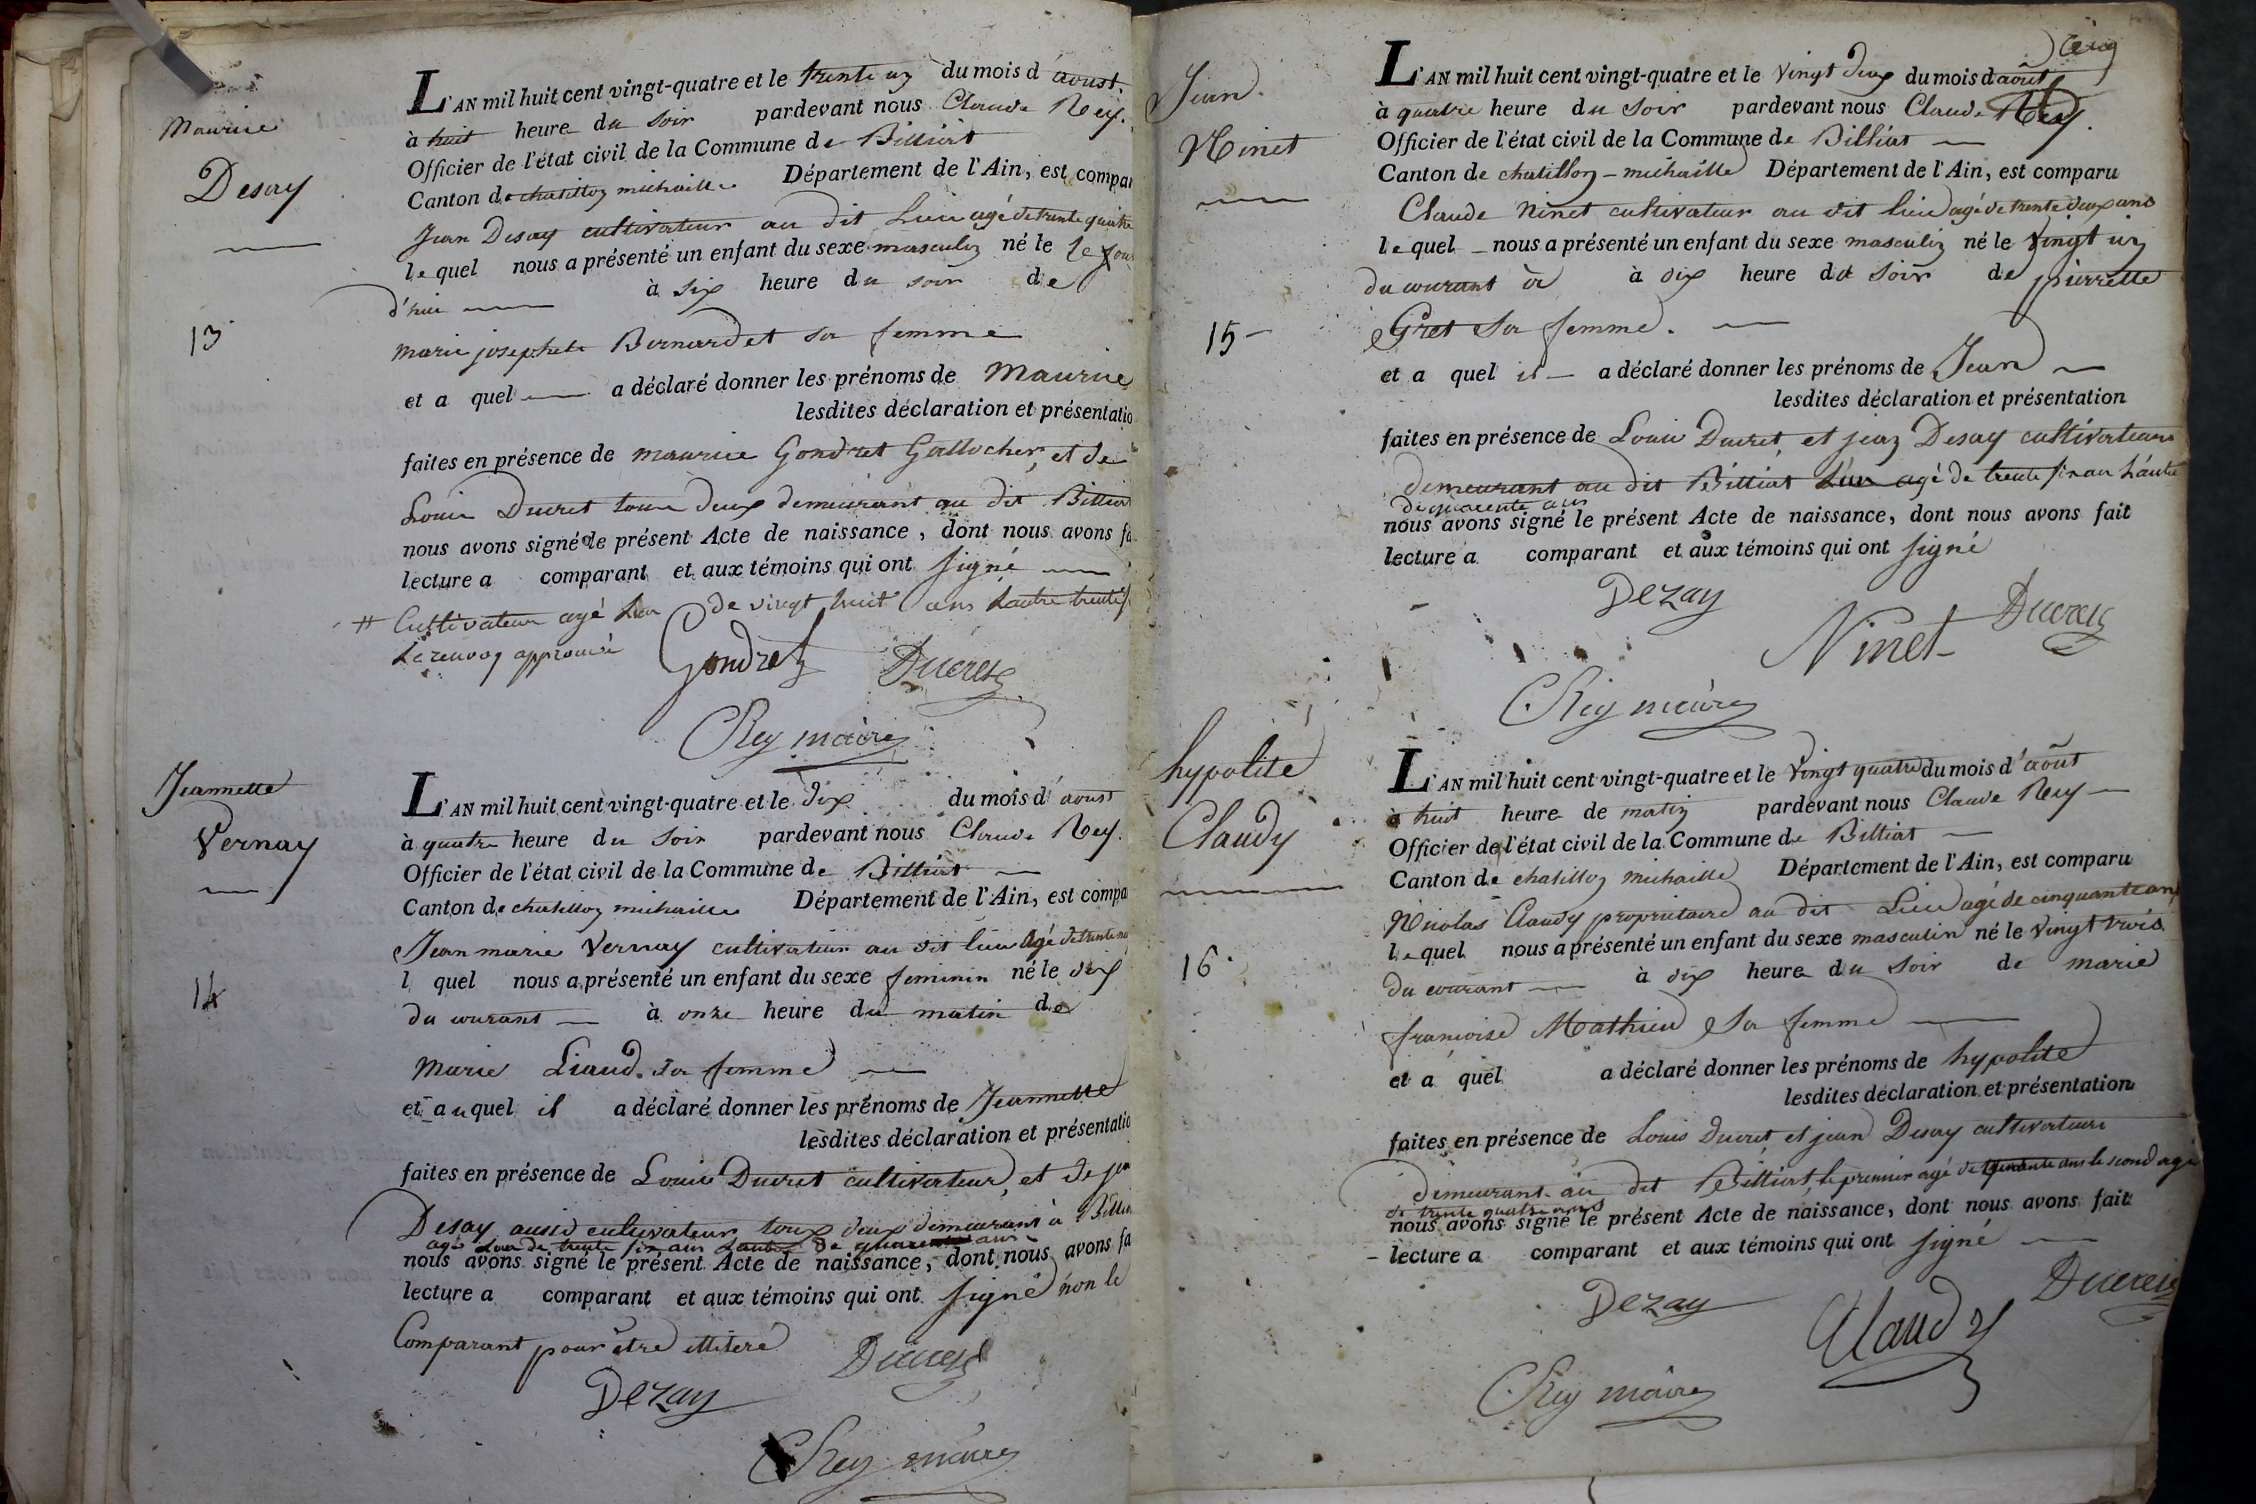 Maurice
Desay
13
L'AN mil huit cent vingt-quatre et le trente un du mois d'aoust
à huit heure du soir pardevant nous Claude Rey.
Officier de l'état civil de la Commune de Billiat
Canton de chatillon michaille Département de l'Ain, est compar
Jean Desay cultivateur au dit Lieu agé de trente quatre
le quel nous a présenté un enfant du sexe masculin né le le jour
d'hui à six heure du soir de
marie josephete Bernardet sa femme
et a quel a déclaré donner les prénoms de Maurice
lesdites déclaration et présentatio
faites en présence de maurice Gondret Gallocher, et de
Louis Ducret tous deux demeurant au dit Billiat
nous avons signé le présent Acte de naissance, dont nous avons fa
lecture a comparant et aux témoins qui ont signé
# Cultivateur agé Lun de vingt huit ans Lautre trente
Le renvoy approuvé
Gondret Ducret
CRey maire
Jeannette
Vernay
14
L'AN mil huit cent vingt-quatre et le dix du mois d'aoust
à quatre heure du soir pardevant nous Claude Rey.
Officier de l'état civil de la Commune de Billiat
Canton de chatillon michaille Département de l'Ain, est compa
Jean marie Vernay cultivateur au dit lieu agé de trente
l quel nous a présenté un enfant du sexe feminin né le dix
du courant à onze heure du matin de
Marie Liaud. sa femme
et au quel il a déclaré donner les prénoms de Jeannette
lesdites déclaration et présentatio
faites en présence de Louis Ducret cultivateur, et de jean
Desay aussi cultivateur tous deux demeurant à Billiat
agé Lun de trente six ans Lautre de quarente ans
nous avons signé le présent Acte de naissance, dont nous avons fa
lecture a comparant et aux témoins qui ont signé non le
Comparant pour être illiteré
Dezay Ducret
CRey maire
Jean
Ninet
15
L'AN mil huit cent vingt-quatre et le vingt deux du mois d'août
à quatre heure du soir pardevant nous Claude Rey.
Officier de l'état civil de la Commune de Billiat
Canton de chatillon-michaille Département de l'Ain, est comparu
Claude Ninet cultivateur au dit lieu agé de trente deux ans
le quel nous a présenté un enfant du sexe masculin né le vingt un
du courant à dix heure du soir de pierrette
Gret sa femme.
et a quel il a déclaré donner les prénoms de Jean
lesdites déclaration et présentation
faites en présence de Louis Ducret, et jean Desay cultivateurs
demeurant au dit Billiat L'un agé de trente six an L'autre
de quarente ans
nous avons signé le présent Acte de naissance, dont nous avons fait
lecture a comparant et aux témoins qui ont signé
Dezay Ninet Ducret
CRey maire
hypolite
Claudy
16
L'AN mil huit cent vingt-quatre et le vingt quatre du mois d'août
à huit heure de matin pardevant nous Claude Rey
Officier de l'état civil de la Commune de Billiat
Canton de chatillon michaille Département de l'Ain, est comparu
Nicolas Claudy propriétaire au dit Lieu agé de cinquante ans
le quel nous a présenté un enfant du sexe masculin né le vingt trois
du courant à dix heure du soir de marie
françoise Mathieu sa femme
et a quel a déclaré donner les prénoms de hypolite
lesdites déclaration et présentation
faites en présence de Louis Ducret, et jean Desay cultivateurs
demeurant au dit Billiat, le premier agé de quarente ans le second agé
de trente quatre ans
nous avons signé le présent Acte de naissance, dont nous avons fait
lecture a comparant et aux témoins qui ont signé
Dezay Claudy Ducret
CRey maire